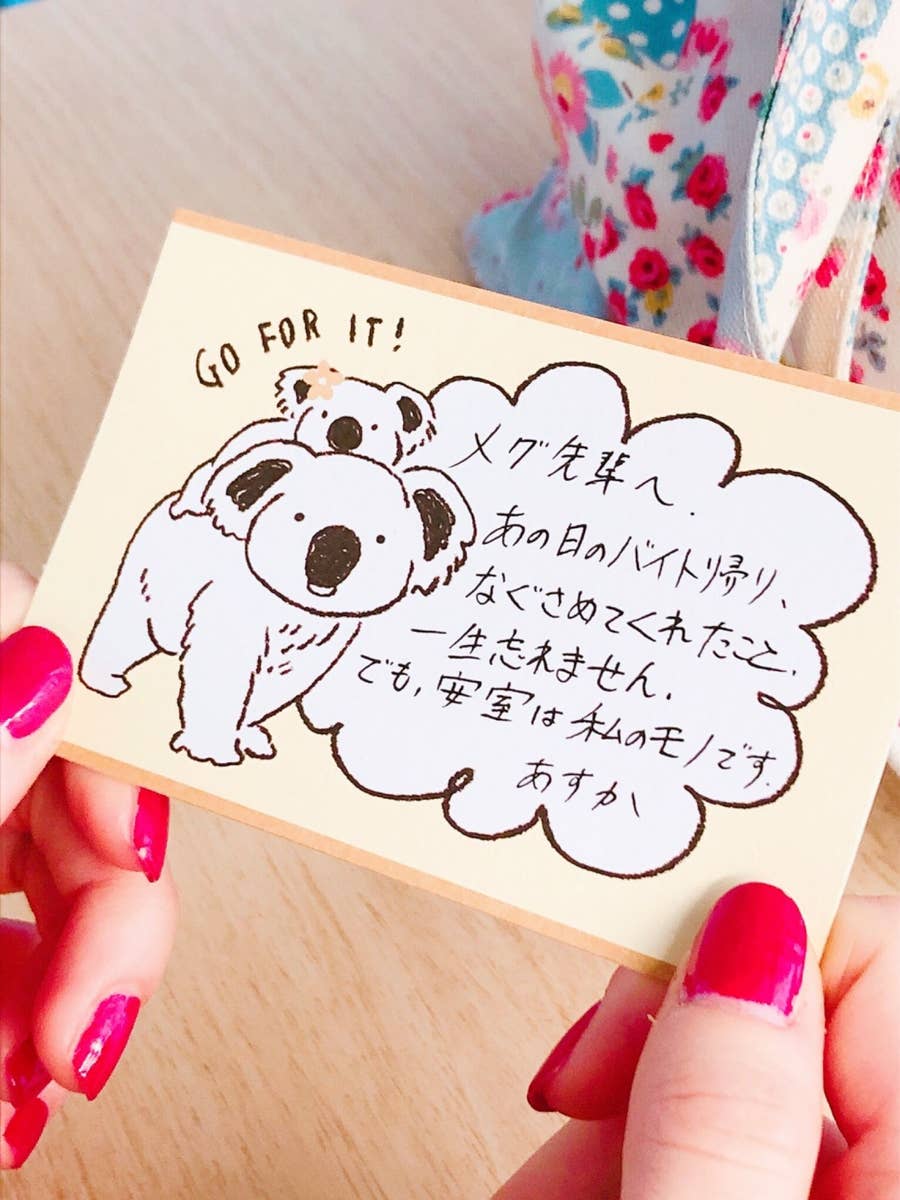 GO FOR IT!
メグ先輩へ.
あの日のバイト帰り、
なぐさめてくれたこと.
一生忘れません.
でも,安室は私のモノです.
あすか